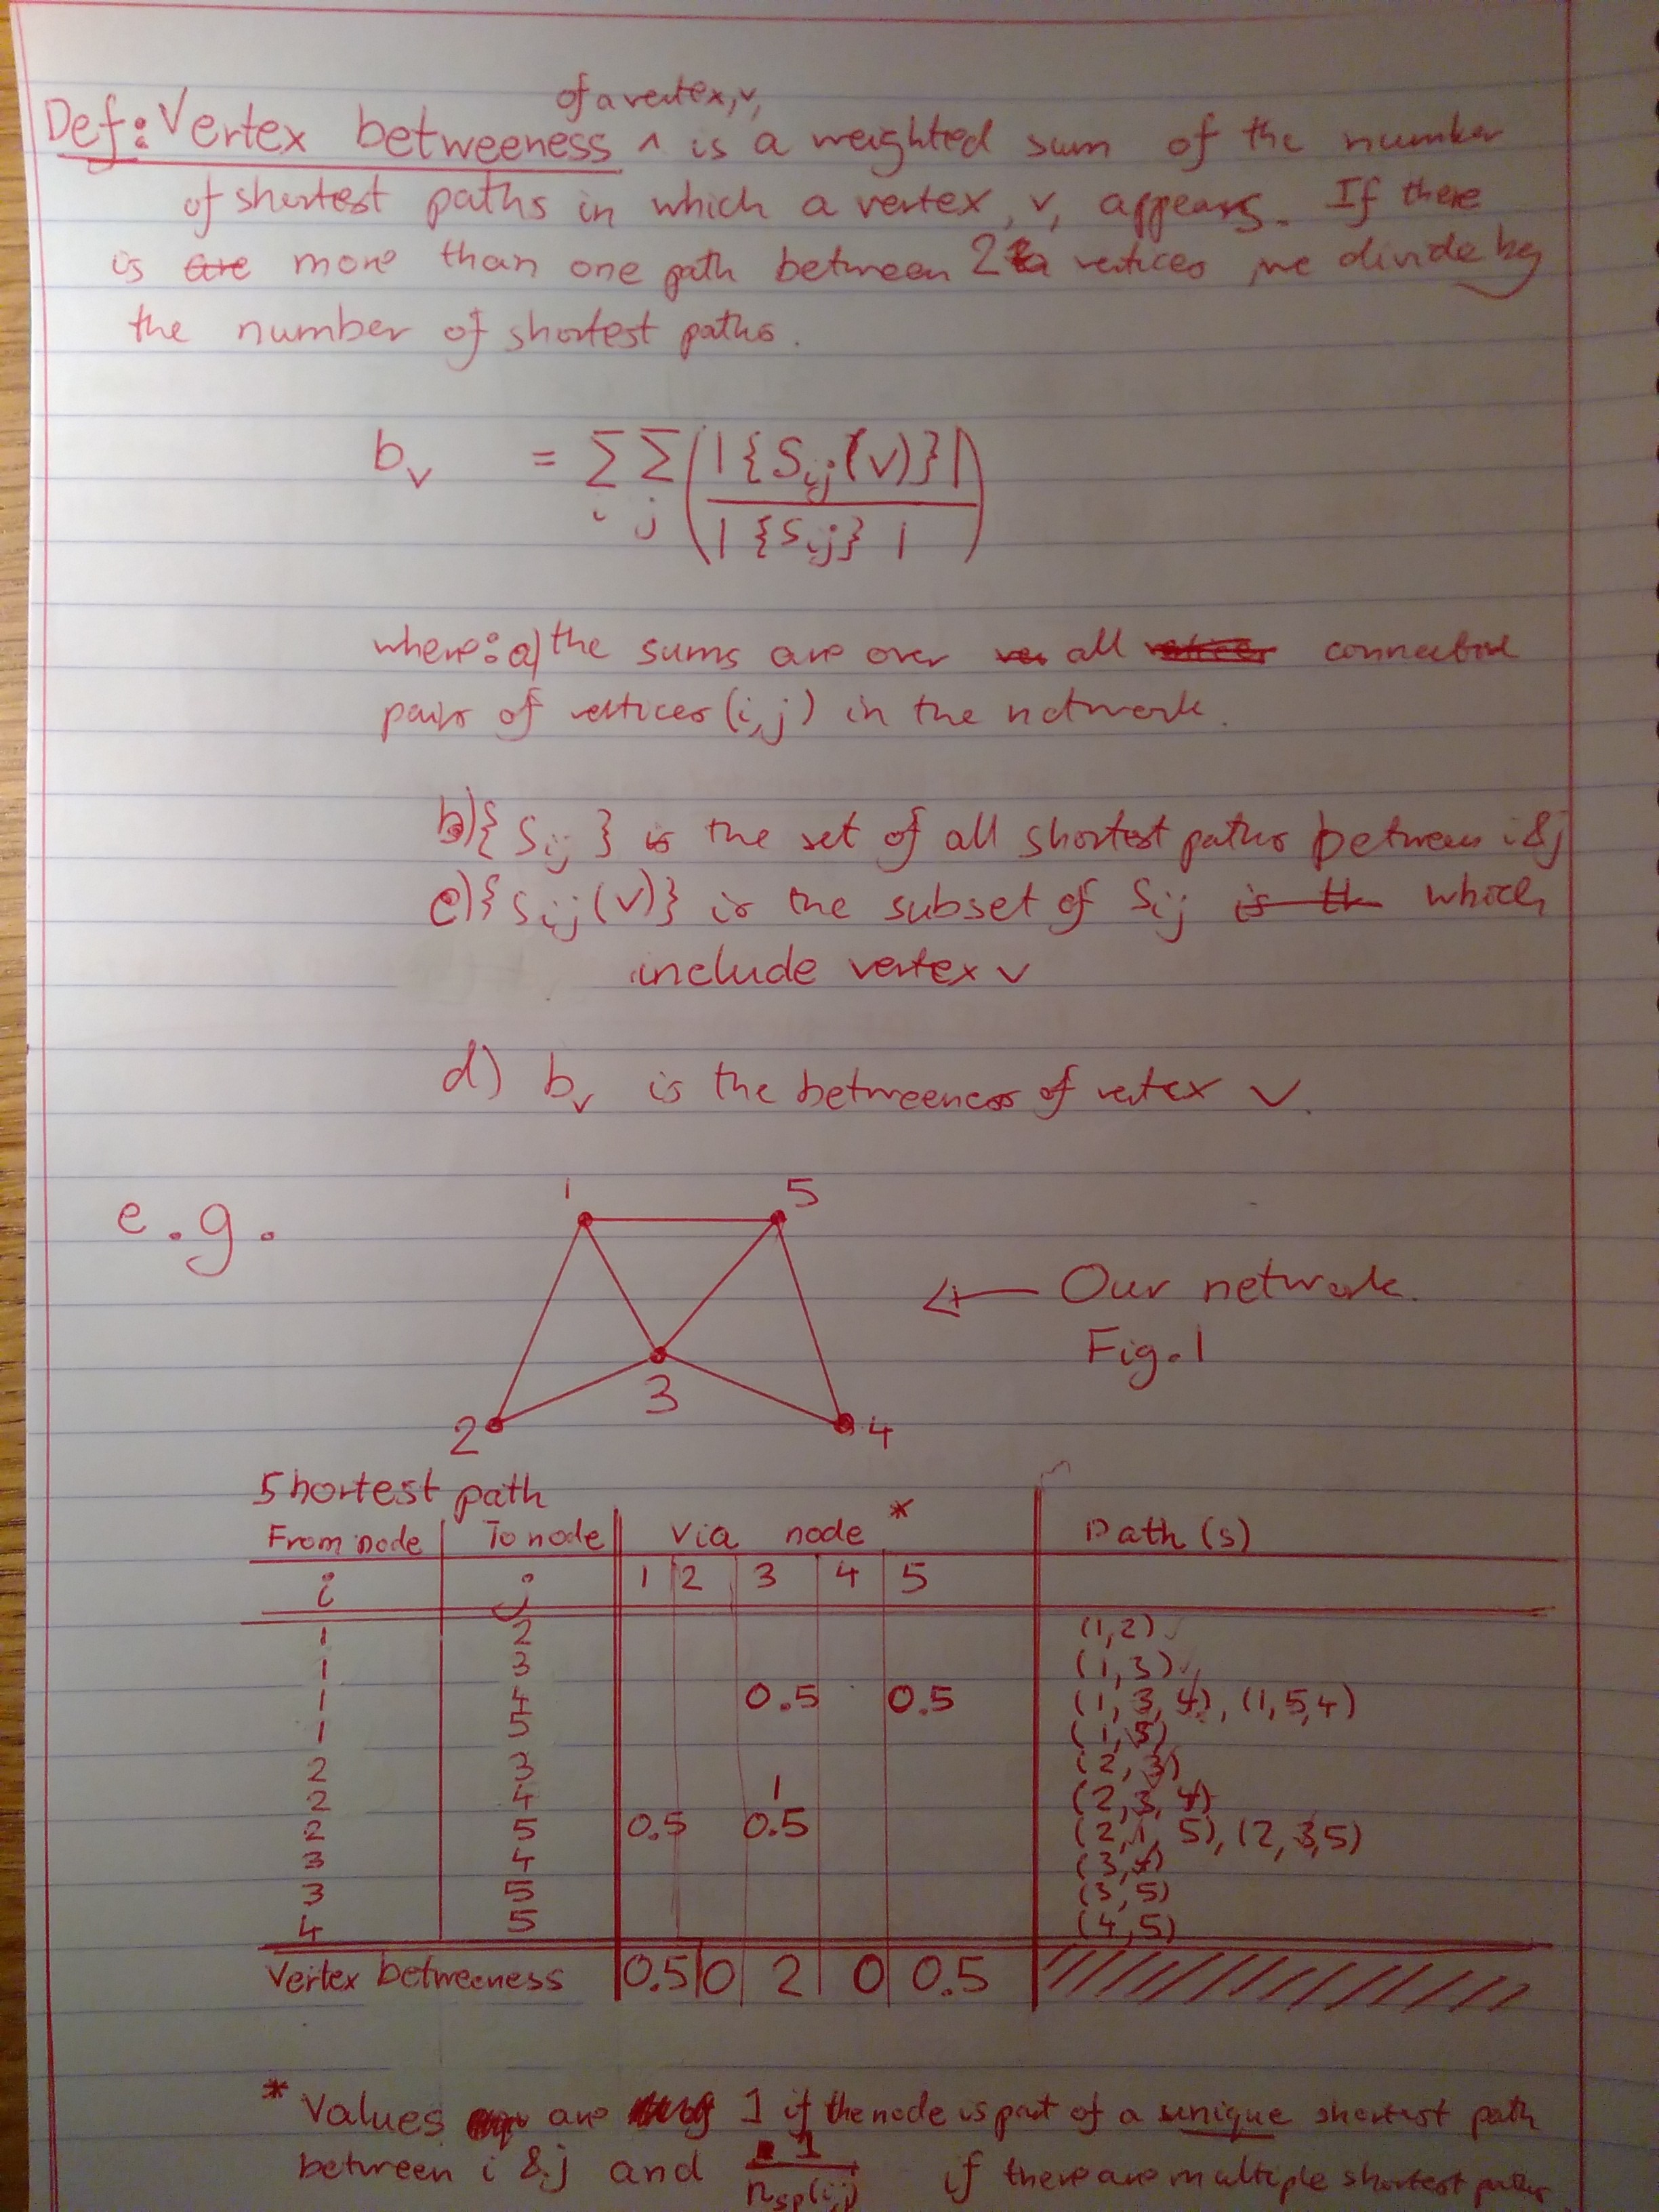 of a vertex, v,
Def: Vertex betweeness ^ is a weighted sum of the number
of shortest paths in which a vertex, v, appears. If there
is are more than one path between 2 vertices, we divide by
the number of shortest paths.
b_v = Σ_i Σ_j ( |{S_ij(v)}| / |{S_ij}| )
where: a) the sums are over all connected
pairs of vertices (i,j) in the network.
b) {S_ij} is the set of all shortest paths between i & j
c) {S_ij(v)} is the subset of S_ij is th which
include vertex v
d) b_v is the betweeness of vertex v.
e.g.
1 5
← Our network.
Fig. 1
3
2 4
Shortest path
From node To node Via node * Path(s)
i j 1 2 3 4 5
1 2 (1,2)
1 3 (1,3)
1 4 0.5 0.5 (1,3,4), (1,5,4)
1 5 (1,5)
2 3 (2,3)
2 4 1 (2,3,4)
2 5 0.5 0.5 (2,1,5), (2,3,5)
3 4 (3,4)
3 5 (3,5)
4 5 (4,5)
Vertex betweeness 0.5 0 2 0 0.5
* Values are 1 if the node is part of a unique shortest path
between i & j and 1/n_sp(i,j) if there are multiple shortest paths